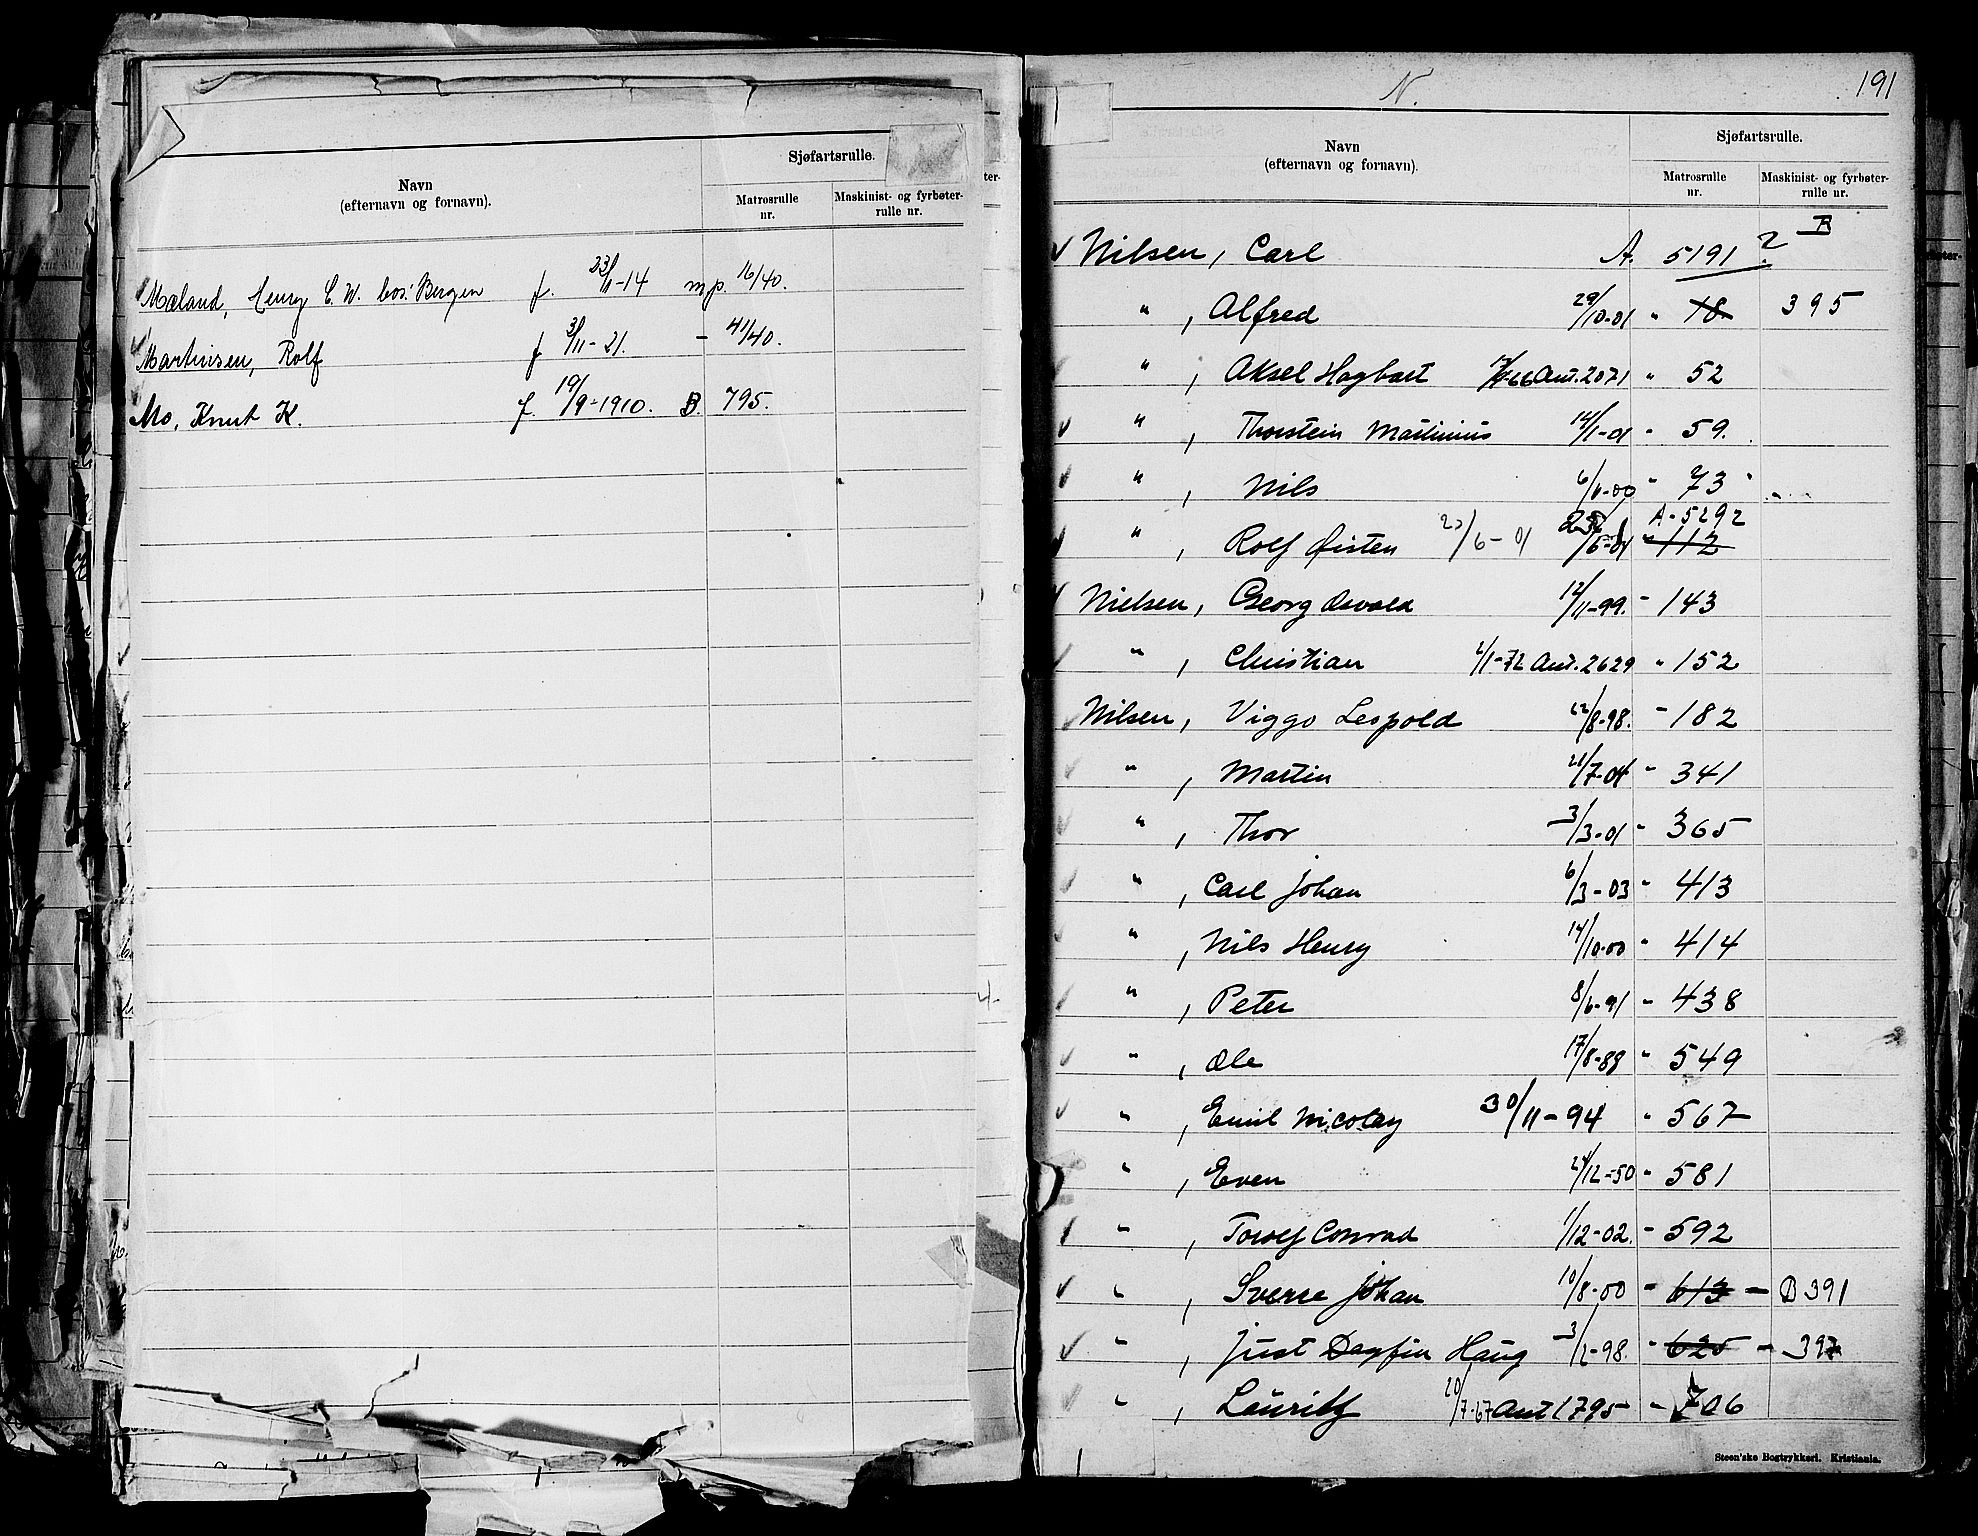 Navn
(efternavn og fornavn).
Sjøfartsrulle.
Matrosrulle
nr.
Maskinist- og fyrbøter-
rulle nr.
Mæland, Henry C. W. bos: Bergen f. 23/11-14 mp. 16/40.
Martinsen, Rolf f 3/11-21. - 41/40.
Mo, Knut K. f. 19/9-1910. B. 795.
N. 191
Navn
(efternavn og fornavn).
Sjøfartsrulle.
Matrosrulle
nr.
Maskinist- og fyrbøter-
rulle nr.
Nilsen, Carl A. 5191 ?
" , Alfred 29/10-01 " 18 395
" , Aksel Hagbart Ant. 2071 " 52
" , Thorstein Martinius 14/1-01 - 59.
" , Nils - 73
" , Rolf Øisten 23/6-01 A-5292
23/6-01 " 112
Nielsen, Georg Osvald 12/11-99. - 143
" , Christian 2/1-72 Ant. 2629 " 152
Nilsen, Viggo Leopold 12/8-98. - 182
" , Martin 21/7-04 - 341
" , Thor 3/3-01 - 365
" , Carl Johan 6/3-03 - 413
" , Nils Henry 14/10-00 - 414
" , Peter 8/6-91 - 438
" , Ole 17/8-88 - 549
" , Emil Nicolay 30/11-94 " 567
" , Even 24/12-50 - 581
" , Torolf Conrad 1/12-02. - 592
" , Sverre Johan 10/8-00 - 613 - B 391
" , Just Dagfin Haug 3/2-98. - 625 - 397
" , Lauritz 20/7-67 Ant 1795 - 706
Steen'ske Bogtrykkeri. Kristiania.